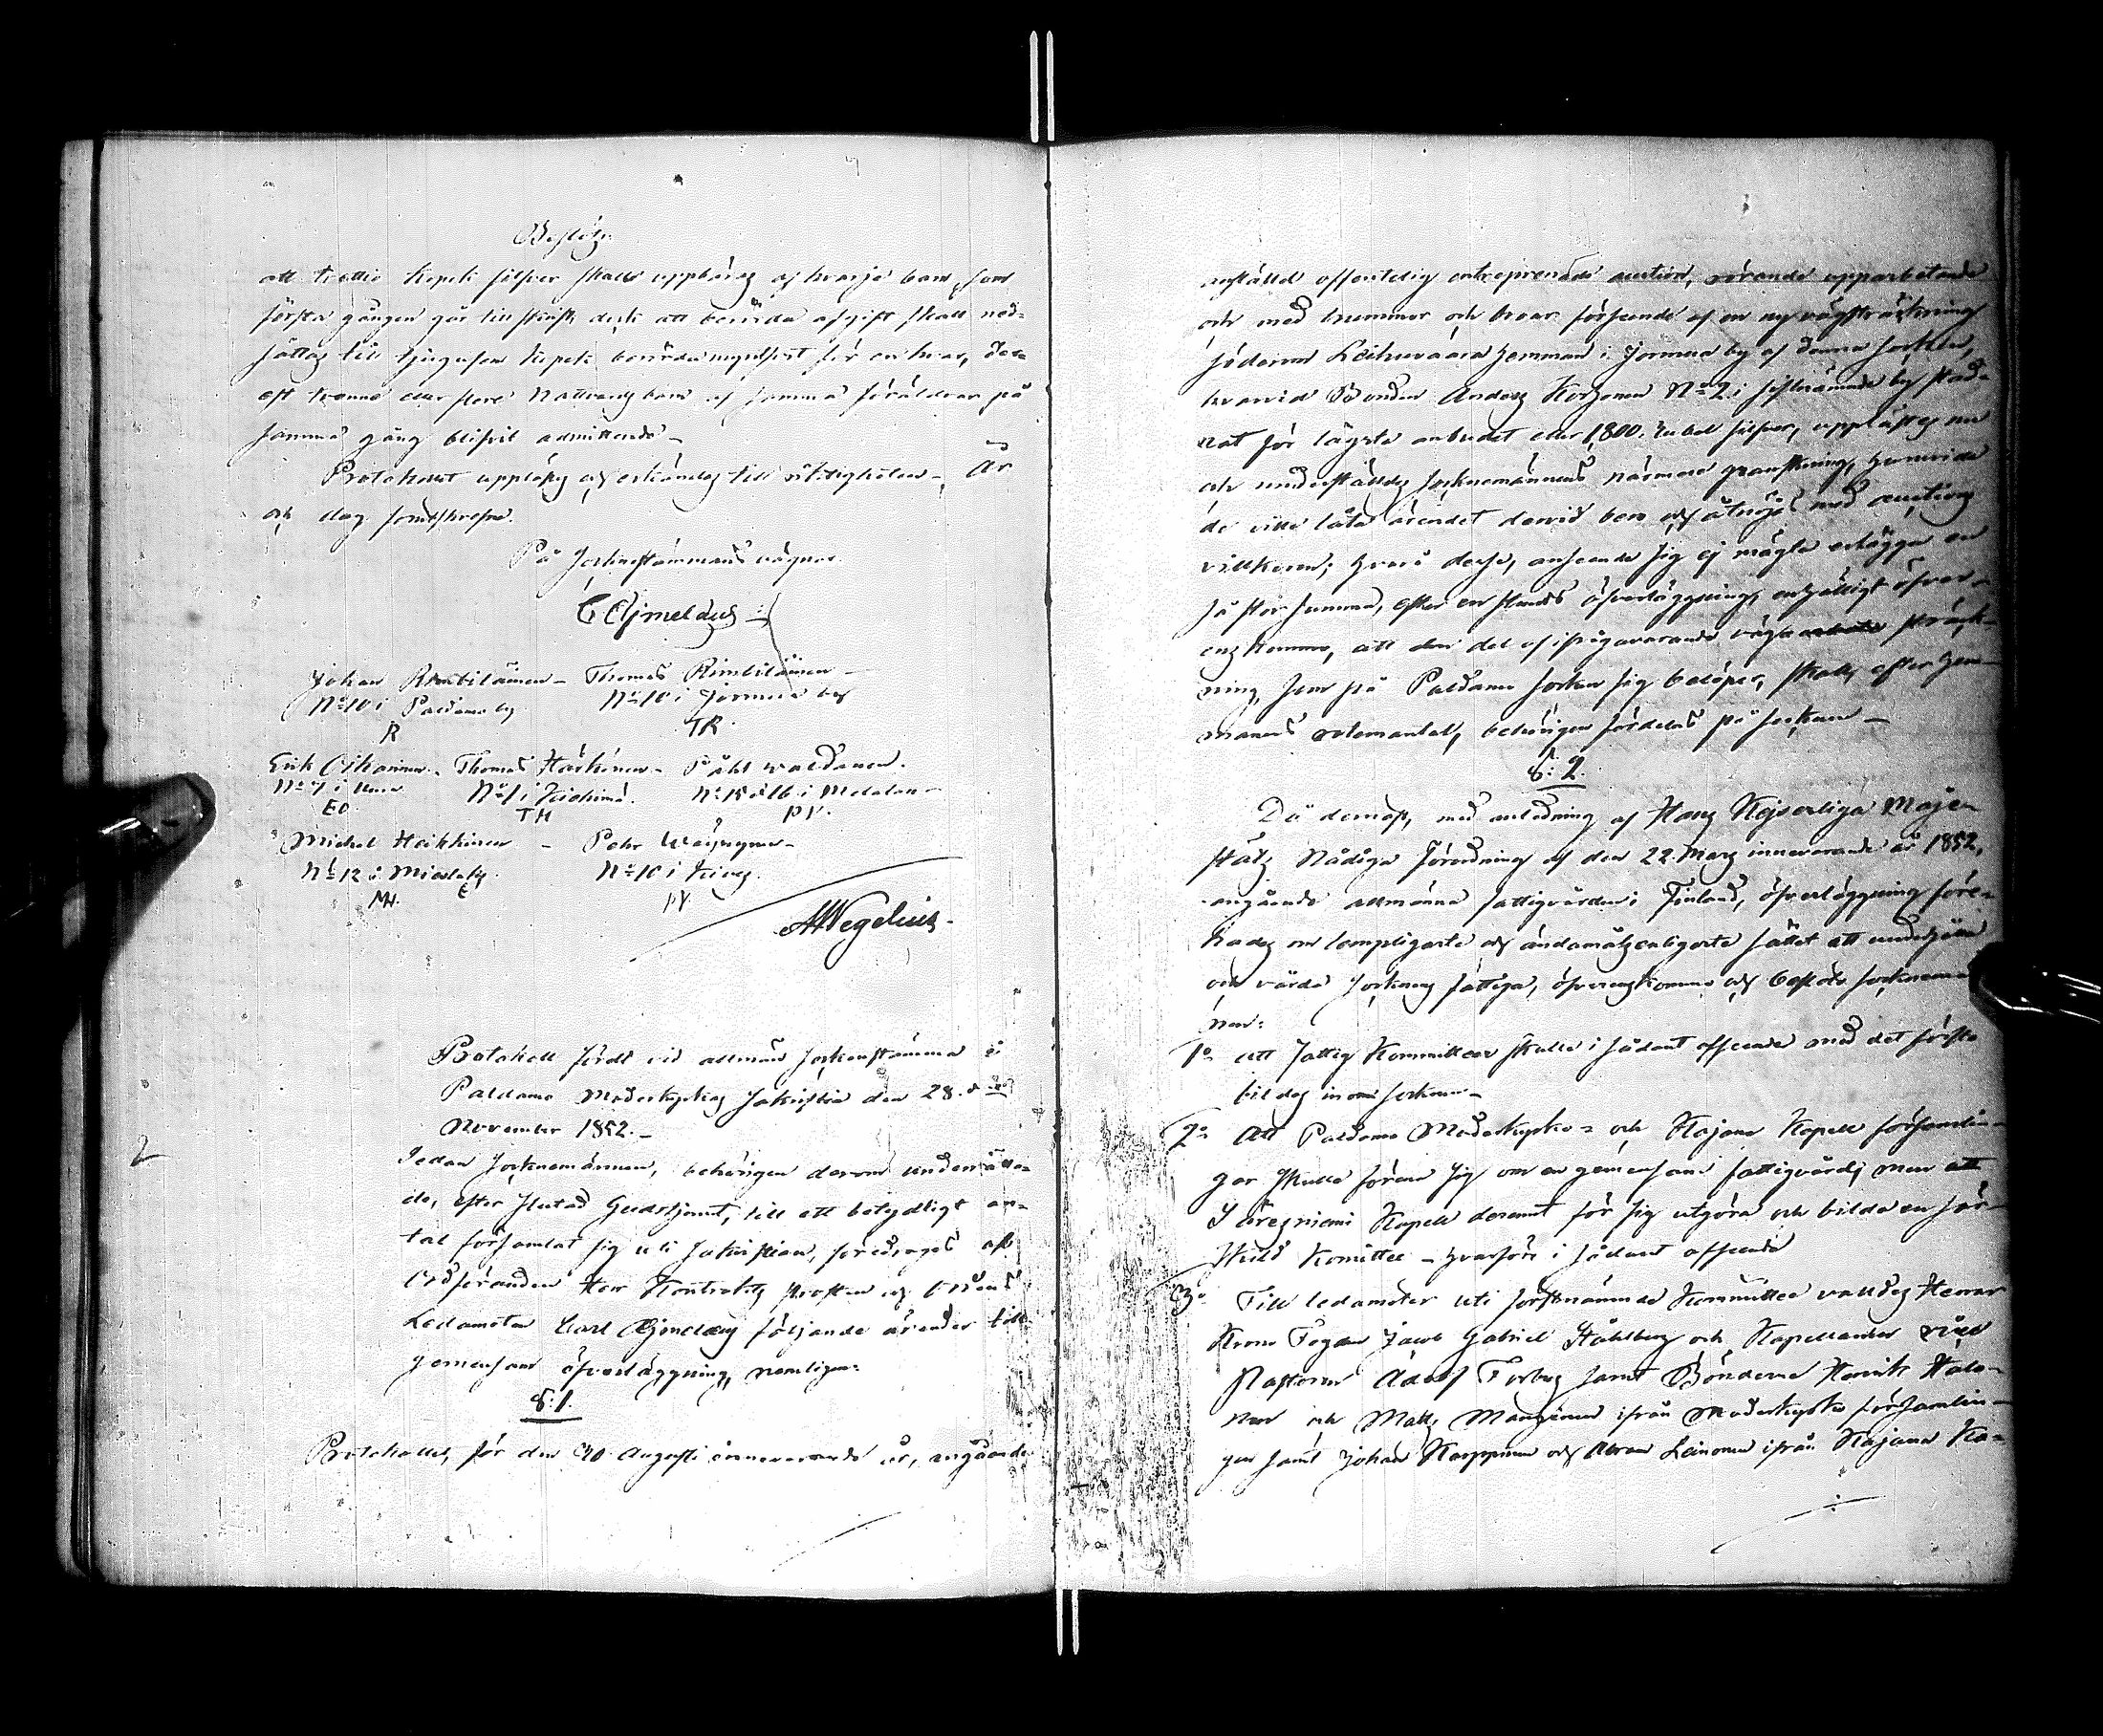 Beslöts:
att trettio kopek silfver skall uppbäras af hvarje barn, som
första gången går till skrift, dock att berörda afgift skall ned-
sättas till tjugufem kopek berörde myntsort för en hvar, der-
est tvenne eller flere Nattvards barn af samma föräldrar på
samma gång blifvit admitterade -
Protokollet upplästes och erkändes till riktigheten - År
och dag somofvanskrefne.
På Sockenstämmans vägnar
C Ajmelæus
Johan Rimbiläinen - Thomas Rimbiläinen -
No 10 i Paldamo by No 10 i Jormua by
R TR
Erik Oikarinen - Thomas Härkönen - Påhl Waldanen.
No 7 i No 1 i Kiehimä. No 15 & 16 i Melalan -
EO TH PV.
Michel Heikkinen - Pehr Wäyrynen -
No 12 i Mieslaby. No 10 i Kives.
MH. PV
AWegelius -
Protokoll fördt vid allmän Sockenstämma i
Paldamo Moderkyrkas Sakristia den 28.de
November 1852. -
2
Sedan Socknemännen, behörigen derom underrätta-
de, efter slutad Gudstjenst, till ett betydligt an-
tal församlat sig uti Sakristian, föredrogos af
Ordföranden Herr Kontrakts Prosten och Ordens
Ledamoten Carl Ajmelæus följande ärender till
gemensam öfverläggning, nemligen:
§: 1.
Protokollet, för den 30 Augusti innevarande år, angående
anställd offentelig entreprenade auction, rörande upparbetande
och med trummor och broar förseende af en ny vägsträckning
söderom Leihuvaara hemman i Jormua by af denna Socken,
hvarvid Bonden Anders Korhonen No 2 i sistnämnde by stad-
nat för lägsta anbudet eller 1,800. rubel silfver, upplästes nu
och underställdes Socknemännens närmare granskning, huruvida
de ville låta ärendet dervid bero och åtnöjas med auctions
villkoren; hvarå desse, anseende sig ej mägta erlägga en
så stor summa, efter en stunds öfverläggning, enhälligt öfver-
enskommo, att den del af ifrågavarande väg sträck-
ning, som på Paldamo Socken sig belöper, skall, efter hem-
manens rotemantal, behörigen fördelas på Socknen -
§: 2.
Då dernäst, med anledning af Hans Kejserliga Maje-
stäts Nådiga Förordning af den 22. Mars innevarande år 1852,
angående allmänna fattigvården i Finland, öfverläggning före-
hades om lämpligaste och ändamålsenligaste sättet att underhålla
och vårda Socknens fattiga, öfverenskommo och beslöto Socknemän-
nen:
1o att Fattig Kommitteer skulle i sådant afseende med det första
bildas inom Socknen -
2o Att Paldamo Moderkyrko- och Kajana Kapell församlin-
gar skulle förena sig om en gemensam fattigvård, men att
Säresniemi Kapell deremot för sig utgöra och bilda en sär-
skild Komittee - hvarföre i sådant afseende
3o Till ledamöter uti förstnämnde Kommittee valdes Herrar
Krono Fogden Jacob Gabriel Ståhlberg och Kapellanen vice
Pastoren Adolf Forbus samt Bönderne Henrik Halo-
nen och Matts Manninen ifrån Moderkyrko församlin-
gen samt Johan Karppinen och Abram Leinonen ifrån Kajana Ka-